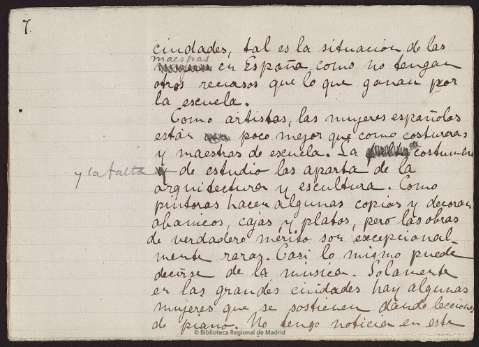 7.
ciudades, tal es la situación de las
maestras
en España como no tengan
otros recursos que lo que ganan por
la escuela.
Como artistas, las mujeres españolas
están poco mejor que como costureras
y maestras de escuela. La costumbre
y la falta de estudio las aparta de la
arquitectura y escultura. Como
pintoras hacen algunas copias y decoran
abanicos, cajas, y platos, pero las obras
de verdadero mérito son excepcional-
mente raras. Casi lo mismo puede
decirse de la musica. Solamente
en las grandes ciudades hay algunas
mujeres que se sostienen dando lecciones
de piano. No tengo noticia en este
© Biblioteca Regional de Madrid